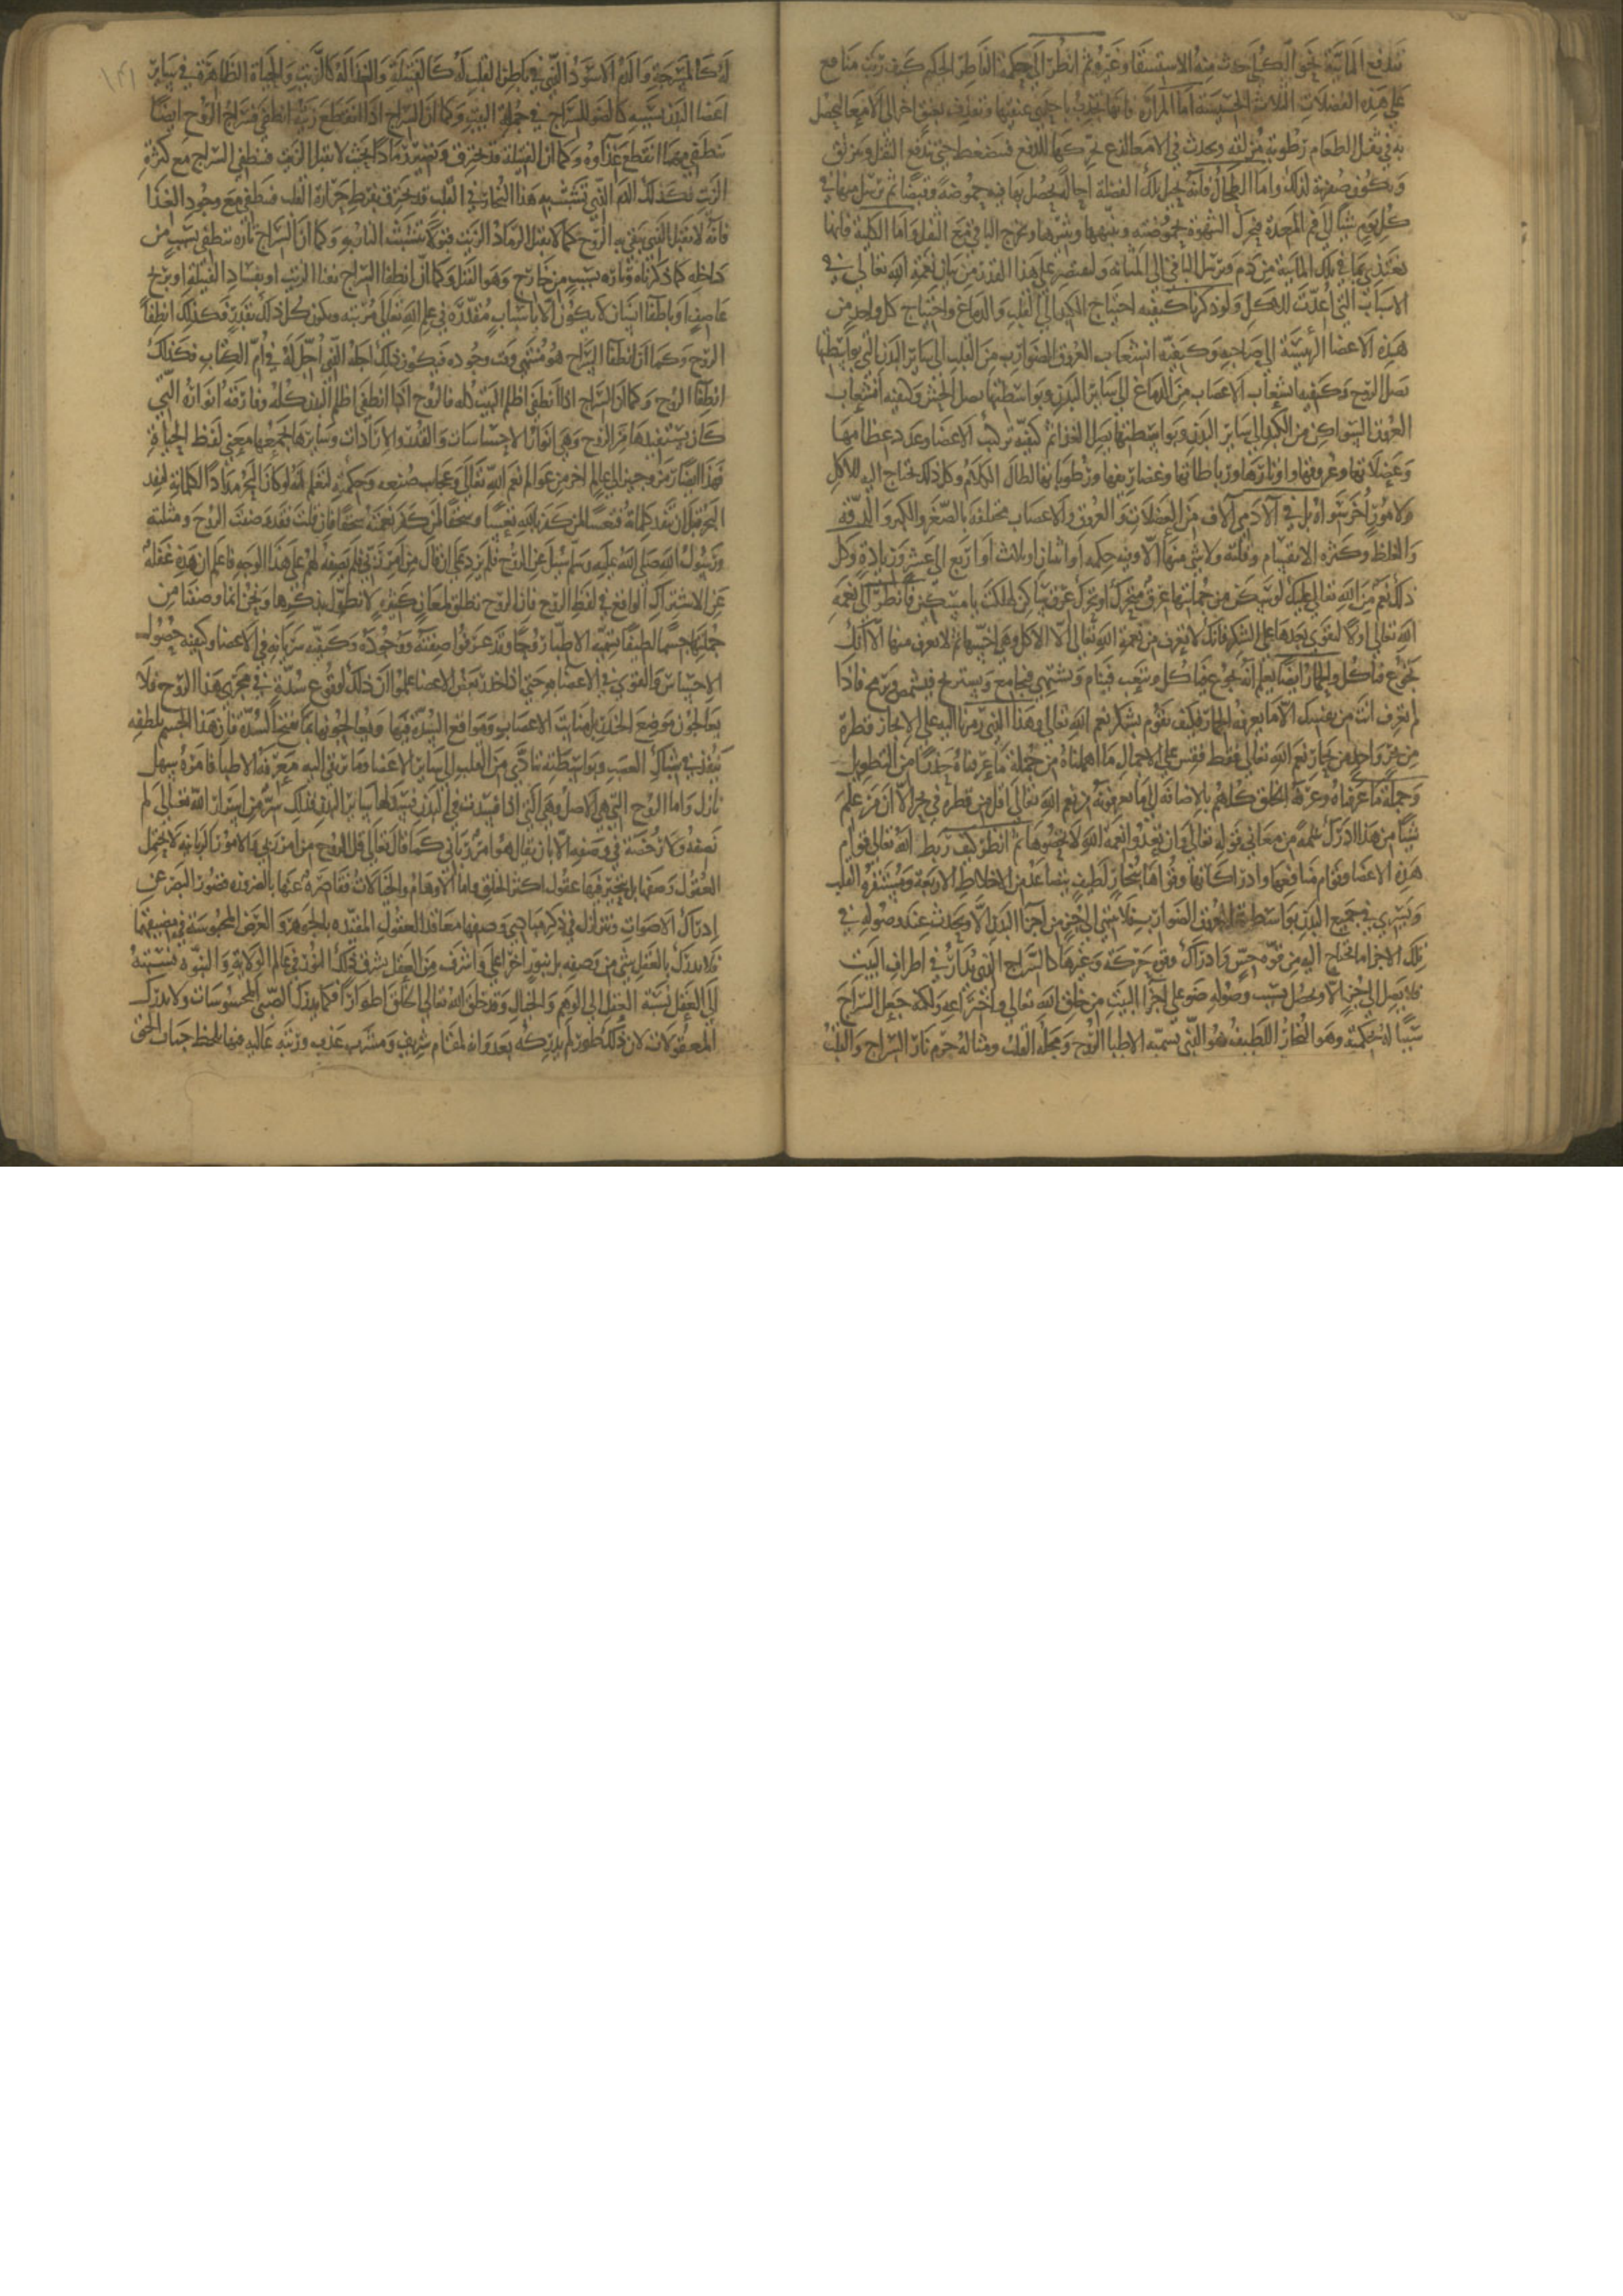 تندفع المائية نحو الكلى حدث منه الاستسقا وغيره ثم انظر الى حكمة الفاطر الحكيم كيف رتب منافع
على هذه الفضلات الثلاث الخسيسة اما المرارة فانها تجذب باحدى عنقيها وتقذف بعنق اخر الى الامعا ليحصل
به في ثفل الطعام رطوبة مزلقة ويحدث في الامعا لذع يحركها للدفع فتنضغط حتى يندفع الثفل وينزلق
وتكون صفرته لذلك واما الطحال فانه يحيل تلك الفضلة احالة يحصل بها فيه حموضة وقبضا ثم يرسل منها في
كل يوم شيا الى فم المعدة فيحرك الشهوة بحموضته وينبهها ويثيرها ويخرج الباقي مع الثفل واما الكلية فانها
تغتذي بما في تلك المائية من دم وترسل الباقي الى المثانة ولنقتصر على هذا القدر من بيان نعمة الله تعالى في
الاسباب التي اعدت للاكل ولو ذكرنا كيفية احتياج الكبد الى القلب والدماغ واحتياج كل واحد من
هذه الاعضا الرئيسة الى صاحبه وكيفية انشعاب العروق الضوارب من القلب الى سائر البدن التي بواسطتها
تصل الروح وكيفية انشعاب الاعصاب من الدماغ الى سائر البدن وبواسطتها يصل الحس وكيفية انشعاب
العروق السواكن من الكبد الى سائر البدن وبواسطتها يصل الغذا ثم كيفية تركيب الاعضا وعدد عظامها
وعضلاتها وعروقها واوتارها ورباطاتها وغضاريفها ورطوباتها لطال الكلام وكل ذلك يحتاج اليه للاكل
ولامور اخر سواه بل في الآدمي آلاف من العضلات والعروق والاعصاب مختلفة بالصغر والكبر والدقة
والغلظ وكثرة الانقسام وقلته ولا شي منها الا وفيه حكمة او اثنان او ثلاث او اربع الى عشر وزيادة وكل
ذلك نعم من الله تعالى عليك لو سكن من جملتها عرق متحرك او تحرك عرق ساكن لهلكت يا مسكين فانظر الى نعمة
الله تعالى اولا لتقوى بعدها على الشكر فانك لا تعرف من نعمة الله تعالى الا الاكل وهي اخسها ثم لا تعرف منها الا انك
تجوع فتاكل والحمار ايضا يعلم انه يجوع فياكل ويتعب فينام ويشتهي فيجامع ويستريح فينهض ويرمح فاذا
لم تعرف انت من نفسك الا ما يعرفه الحمار فكيف تقوم بشكر نعم الله تعالى وهذا الذي رمزنا اليه على الايجاز قطرة
من بحر واحد من بحار نعم الله تعالى فقط فقس على الاجمال ما اهملناه من جملة ما عرفناه حذرا من التطويل
وجملة ما عرفناه وعرفه الخلق كلهم بالاضافة الى ما لم يعرفوه من نعم الله تعالى اقل من قطرة في بحر الا ان من علم
شيا من هذا ادرك شمة من معاني قوله تعالى وان تعدوا نعمة الله لا تحصوها ثم انظر كيف ربط الله تعالى قوام
هذه الاعضا وقوام منافعها وادراكاتها وقواها ببخار لطيف يتصاعد من الاخلاط الاربعة ومستقره القلب
ويسري في جميع البدن بواسطة العروق الضوارب فلا ينتهي الى جز من اجزا البدن الا ويحدث عند وصوله في
تلك الاجزا ما يحتاج اليه من قوة حس وادراك وقوة حركة وغيرها كالسراج الذي يدار في اطراف البيت
فلا يصل الى جز الا ويحصل بسبب وصوله ضو على اجزا البيت من خلق الله تعالى واختراعه ولكنه جعل السراج
سببا له بحكمته وهو البخار اللطيف هو الذي تسميه الاطبا الروح ومحله القلب ومثاله جرم نار السراج والقلب
له كالمسرجة والدم الاسود الذي في باطن القلب له كالفتيلة والغذا له كالزيت والحياة الظاهرة في سائر
اعضا البدن بسببه كالضو للسراج في جملة البيت وكما ان السراج اذا انقطع زيته انطفي فسراج الروح ايضا
ينطفي مهما انقطع غذاوه وكما ان الفتيلة قد تحترق وتصير رمادا بحيث لا تقبل الزيت فينطفي السراج مع كثرة
الزيت فكذلك الدم الذي تشبث به هذا البخار في القلب قد يحترق بفرط حرارة القلب فينطفي مع وجود الغذا
فانه لا يقبل الغذا الذي يبقى به الروح كما لا يقبل الرماد الزيت قبولا تتشبث النار به وكما ان السراج تارة ينطفي بسبب من
داخله كما ذكرناه وتارة بسبب من خارج وهو القتل وكما ان انطفا السراج بفنا الزيت او بفساد الفتيلة او بريح
عاصف او باطفا انسان لا يكون الا باسباب مقدرة في علم الله تعالى مرتبة ويكون كل ذلك بقدر فكذلك انطفا
الروح وكما ان انطفا السراج هو منتهى وقت وجوده فيكون ذلك اجله الذي اجل له في ام الكتاب فكذلك
انطفا الروح وكما ان السراج اذا انطفى اظلم البيت كله فالروح اذا انطفى اظلم البدن كله وفارقته انواره التي
كان يستفيدها من الروح وهي انوار الاحساسات والقدر والارادات وسائر ما يجمعها معنى لفظ الحياة
فهذا ايضا رمز وجيز الى عالم اخر من عوالم نعم الله تعالى وعجايب صنعه وحكمته لتعلم انه لو كان البحر مدادا لكلماته لنفد
البحر قبل ان تنفد كلماته فتعسا لمن كفر بالله تعسا وسحقا لمن كفر نعمته سحقا فان قلت فقد وصفت الروح ومثلته
ورسول الله صلى الله عليه وسلم سئل عن الروح فلم يزد على ان قال من امر ربي فلم يصفه لهم على هذا الوجه فاعلم ان هذه غفلة
عن الاشتراك الواقع في لفظ الروح فان الروح تطلق لمعان كثيرة لا نطول بذكرها ونحن انما وصفنا من
جملتها جسما لطيفا تسميه الاطبا روحا وقد عرفوا صفته ووجوده وكيفية سريانه في الاعضا وكيفية حصول
الاحساس والقوى في الاعضا به حتى اذا خدر بعض الاعضا علموا ان ذلك لوقوع سدة في مجرى هذا الروح فلا
يعالجون موضع الخدر بل منابت الاعصاب ومواقع السدة فيها ويعالجونها بما يفتح السدة فان هذا الجسم بلطفه
ينفذ في شباك العصب وبواسطته يتادى من القلب الى سائر الاعضا وما يرتقي اليه معرفة الاطبا فامره سهل
نازل واما الروح التي هي الاصل وهي التي اذا فسدت فسد لها سائر البدن فذلك سر من اسرار الله تعالى لم
نصفه ولا رخصة في وصفه الا بان يقال هو امر رباني كما قال تعالى قل الروح من امر ربي والامور الربانية لا تحتمل
العقول وصفها بل يتحير فيها عقول اكثر الخلق واما الاوهام والخيالات فقاصرة عنها بالضرورة قصور البصر عن
ادراك الاصوات وتتزلزل في ذكر مبادي وصفها معاقد العقول المقيدة بالجوهر والعرض المحبوسة في مضيقهما
فلا يدرك بالعقل شي من وصفه بل بنور اخر اعلى واشرف من العقل يشرق ذلك النور في عالم الولاية والنبوة نسبته
الى العقل نسبة العقل الى الوهم والخيال وقد خلق الله تعالى الخلق اطوارا فكما يدرك الصبي المحسوسات ولا يدرك
المعقولات لان ذلك طور لم يدركه بعد وانه لمقام شريف ومشرب عذب ورتبة عالية فيها يلحظ جناب الحق